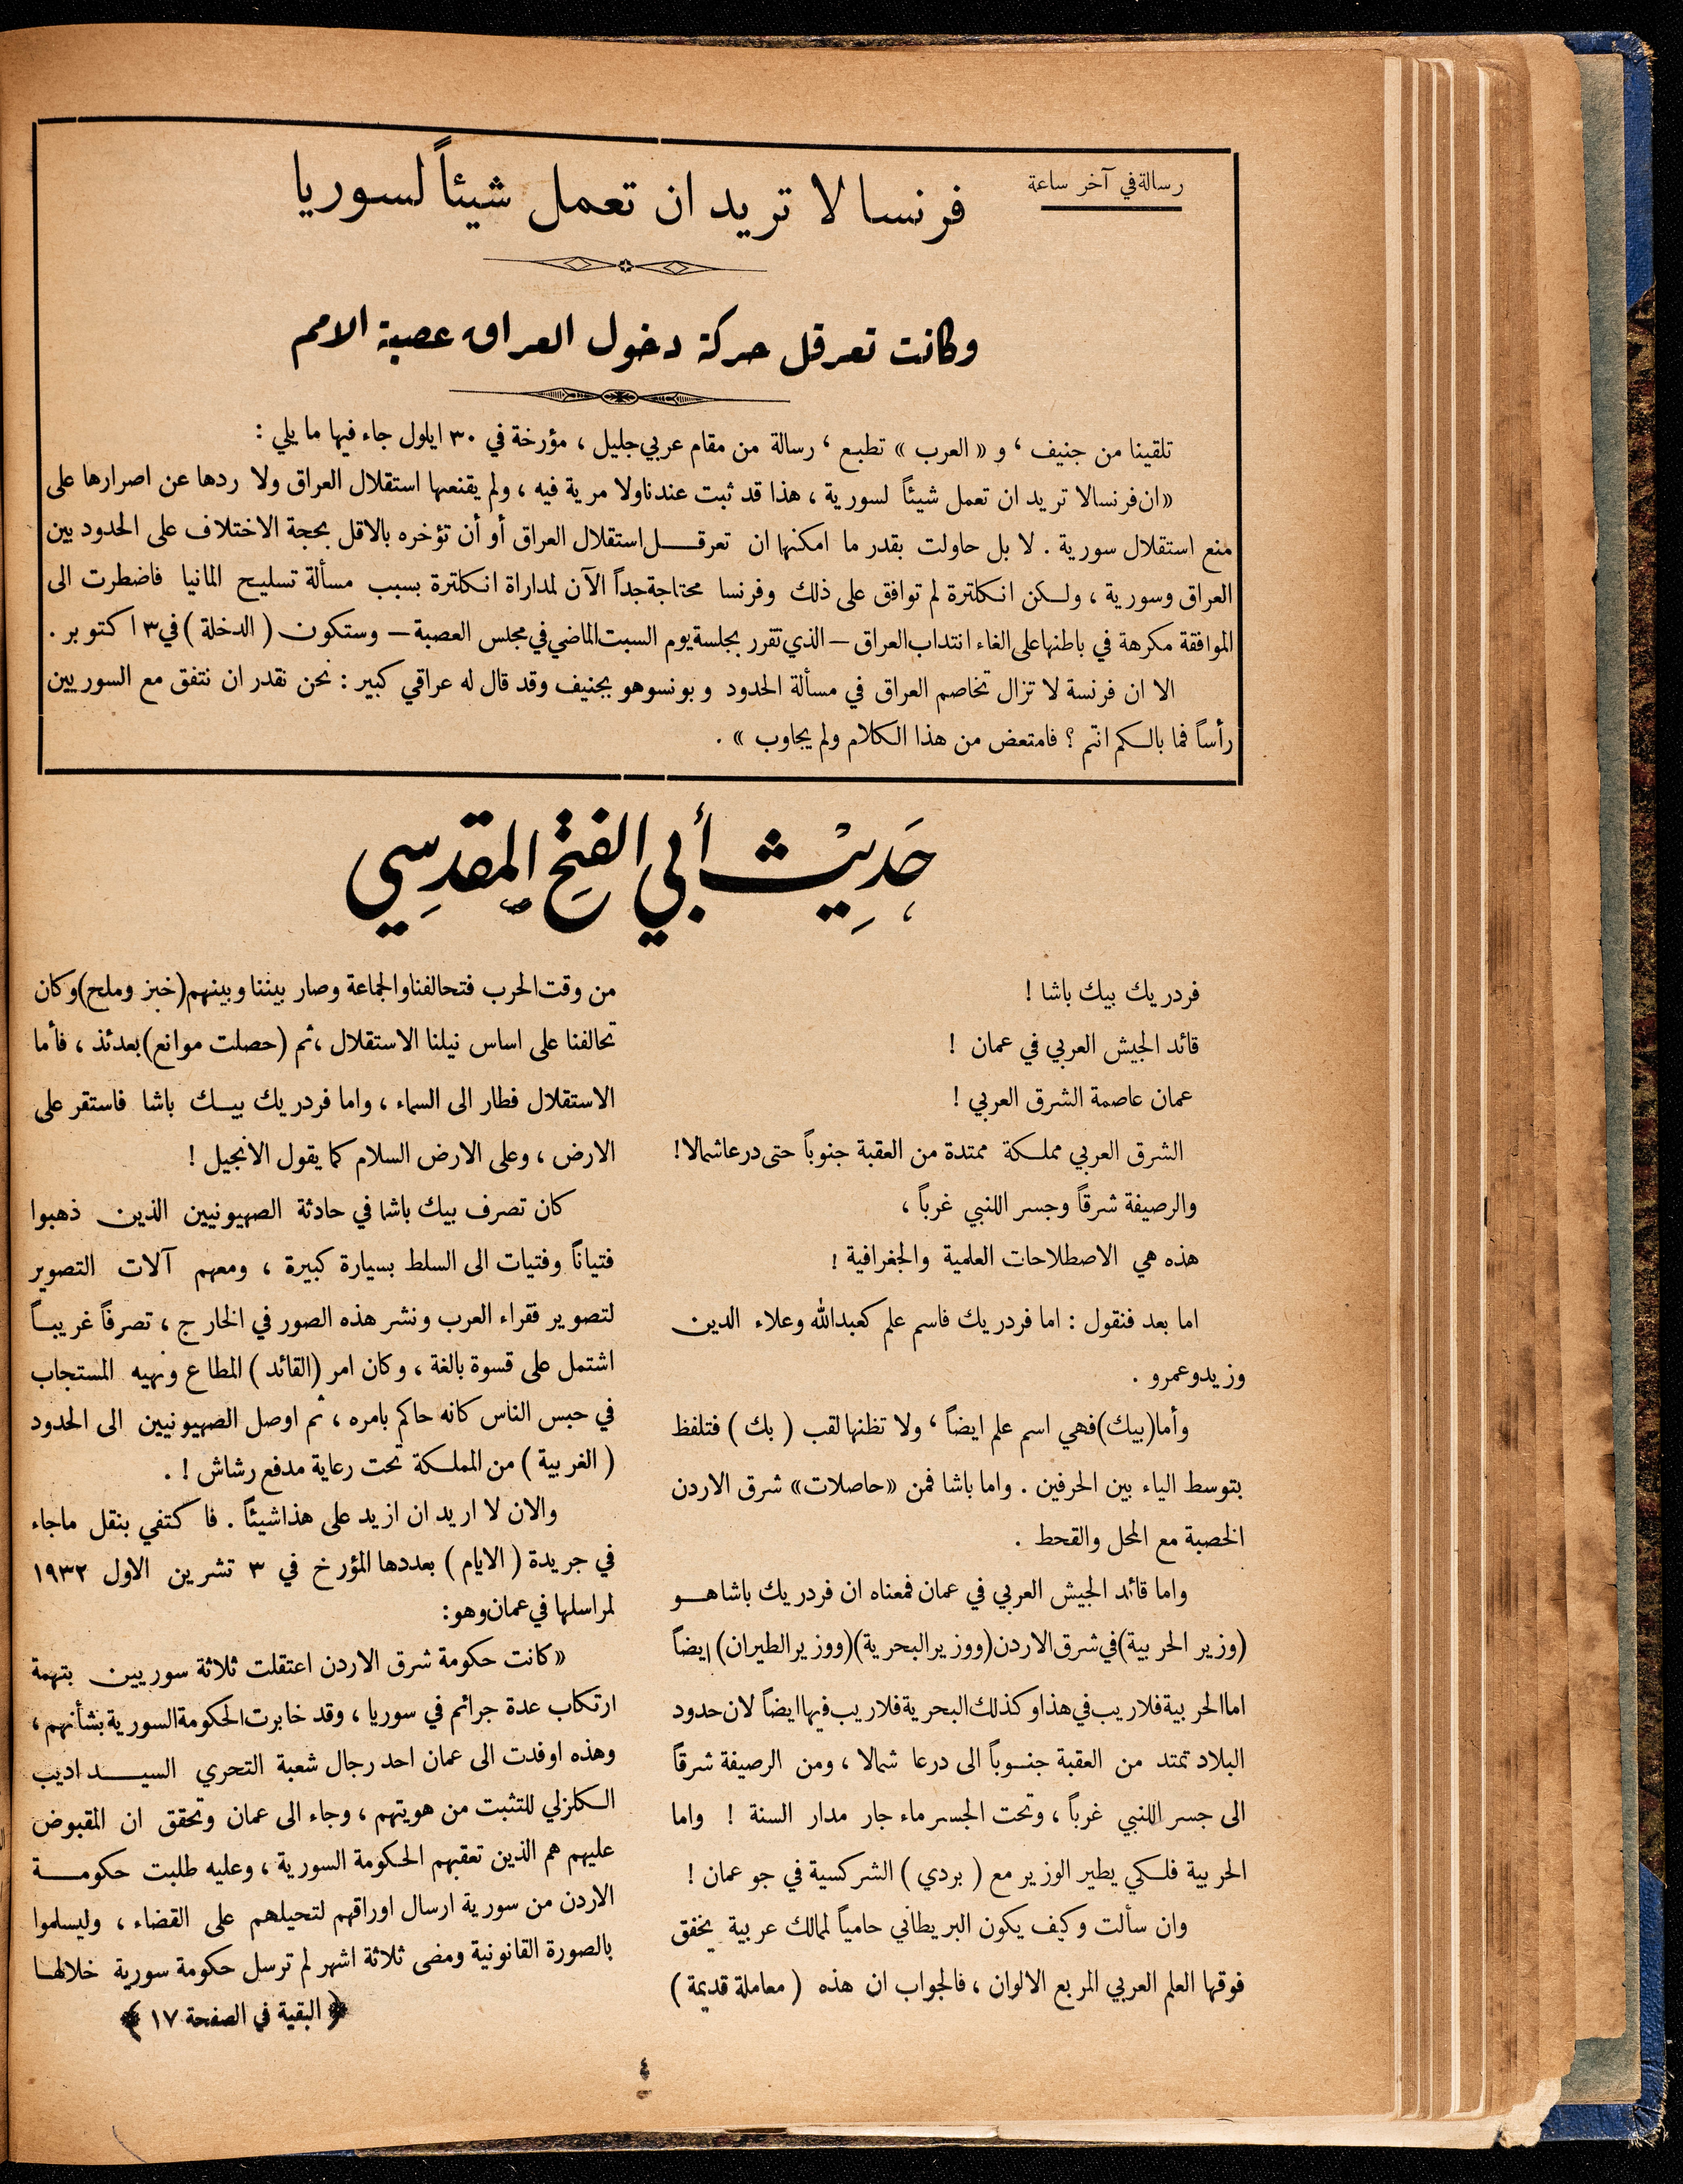 رسالة في آخر ساعة
فرنسا لا تريد ان تعمل شيئاً لسوريا
وكانت تعرقل حركة دخول العراق عصبة الامم
تلقينا من جنيف ، و « العرب » تطبع ، رسالة من مقام عربي جليل ، مؤرخة في ٣٠ ايلول جاء فيها ما يلي :
« ان فرنسا لا تريد ان تعمل شيئاً لسورية ، هذا قد ثبت عندنا ولا مرية فيه ، ولم يقنعها استقلال العراق ولا ردها عن اصرارها على
منع استقلال سورية . لا بل حاولت بقدر ما امكنها ان تعرقل استقلال العراق أو أن تؤخره بالاقل بحجة الاختلاف على الحدود بين
العراق وسورية ، ولكن انكلترة لم توافق على ذلك وفرنسا محتاجة جداً الآن لمداراة انكلترة بسبب مسألة تسليح المانيا فاضطرت الى
الموافقة مكرهة في باطنها على الغاء انتداب العراق — الذي تقرر بجلسة يوم السبت الماضي في مجلس العصبة — وستكون ( الدخلة ) في ٣ اكتوبر .
الا ان فرنسة لا تزال تخاصم العراق في مسألة الحدود و بونسو هو بجنيف وقد قال له عراقي كبير : نحن نقدر ان نتفق مع السوريين
رأساً فما بالكم انتم ؟ فامتعض من هذا الكلام ولم يجاوب » .
حَدِيْث أبي الفتح المقدِسِي
فردريك بيك باشا !
قائد الجيش العربي في عمان !
عمان عاصمة الشرق العربي !
الشرق العربي مملكة ممتدة من العقبة جنوباً حتى درعا شمالا !
والرصيفة شرقاً وجسر اللنبي غرباً ،
هذه هي الاصطلاحات العلمية والجغرافية !
اما بعد فنقول : اما فردريك فاسم علم كعبدالله وعلاء الدين
وزيد وعمرو .
وأما (بيك) فهي اسم علم ايضاً ، ولا تظنها لقب ( بك ) فتلفظ
بتوسط الياء بين الحرفين . واما باشا فمن « حاصلات » شرق الاردن
الخصبة مع المحل والقحط .
واما قائد الجيش العربي في عمان فمعناه ان فردريك باشا هو
(وزير الحربية) في شرق الاردن (ووزير البحرية) (ووزير الطيران) ايضاً
اما الحربية فلا ريب في هذا وكذلك البحرية فلا ريب فيها ايضاً لان حدود
البلاد تمتد من العقبة جنوباً الى درعا شمالا ، ومن الرصيفة شرقاً
الى جسر اللنبي غرباً ، وتحت الجسر ماء جار مدار السنة ! واما
الحربية فلكي يطير الوزير مع ( بردي ) الشركسية في جو عمان !
وان سألت وكيف يكون البريطاني حامياً لممالك عربية يخفق
فوقها العلم العربي المربع الالوان ، فالجواب ان هذه ( معاملة قديمة )
من وقت الحرب فتحالفنا والجماعة وصار بيننا وبينهم (خبز وملح) وكان
تحالفنا على اساس نيلنا الاستقلال ، ثم (حصلت موانع) بعدئذ ، فأما
الاستقلال فطار الى السماء ، واما فردريك بيك باشا فاستقر على
الارض ، وعلى الارض السلام كما يقول الانجيل !
كان تصرف بيك باشا في حادثة الصهيونيين الذين ذهبوا
فتياناً وفتيات الى السلط بسيارة كبيرة ، ومعهم آلات التصوير
لتصوير فقراء العرب ونشر هذه الصور في الخارج ، تصرفاً غريباً
اشتمل على قسوة بالغة ، وكان امر (القائد) المطاع ونهيه المستجاب
في حبس الناس كانه حاكم بامره ، ثم اوصل الصهيونيين الى الحدود
( الغربية ) من المملكة تحت رعاية مدفع رشاش ! .
والان لا اريد ان ازيد على هذا شيئاً . فاكتفي بنقل ما جاء
في جريدة ( الايام ) بعددها المؤرخ في ٣ تشرين الاول ١٩٣٢
لمراسلها في عمان وهو :
« كانت حكومة شرق الاردن اعتقلت ثلاثة سوريين بتهمة
ارتكاب عدة جرائم في سوريا ، وقد خابرت الحكومة السورية بشأنهم ،
وهذه اوفدت الى عمان احد رجال شعبة التحري السيد اديب
الكلزلي للتثبت من هويتهم ، وجاء الى عمان وتحقق ان المقبوض
عليهم هم الذين تعقبهم الحكومة السورية ، وعليه طلبت حكومة
الاردن من سورية ارسال اوراقهم لتحيلهم على القضاء ، وليسلموا
بالصورة القانونية ومضى ثلاثة اشهر لم ترسل حكومة سورية خلالها
﴿ البقية في الصفحة ١٧ ﴾
٤